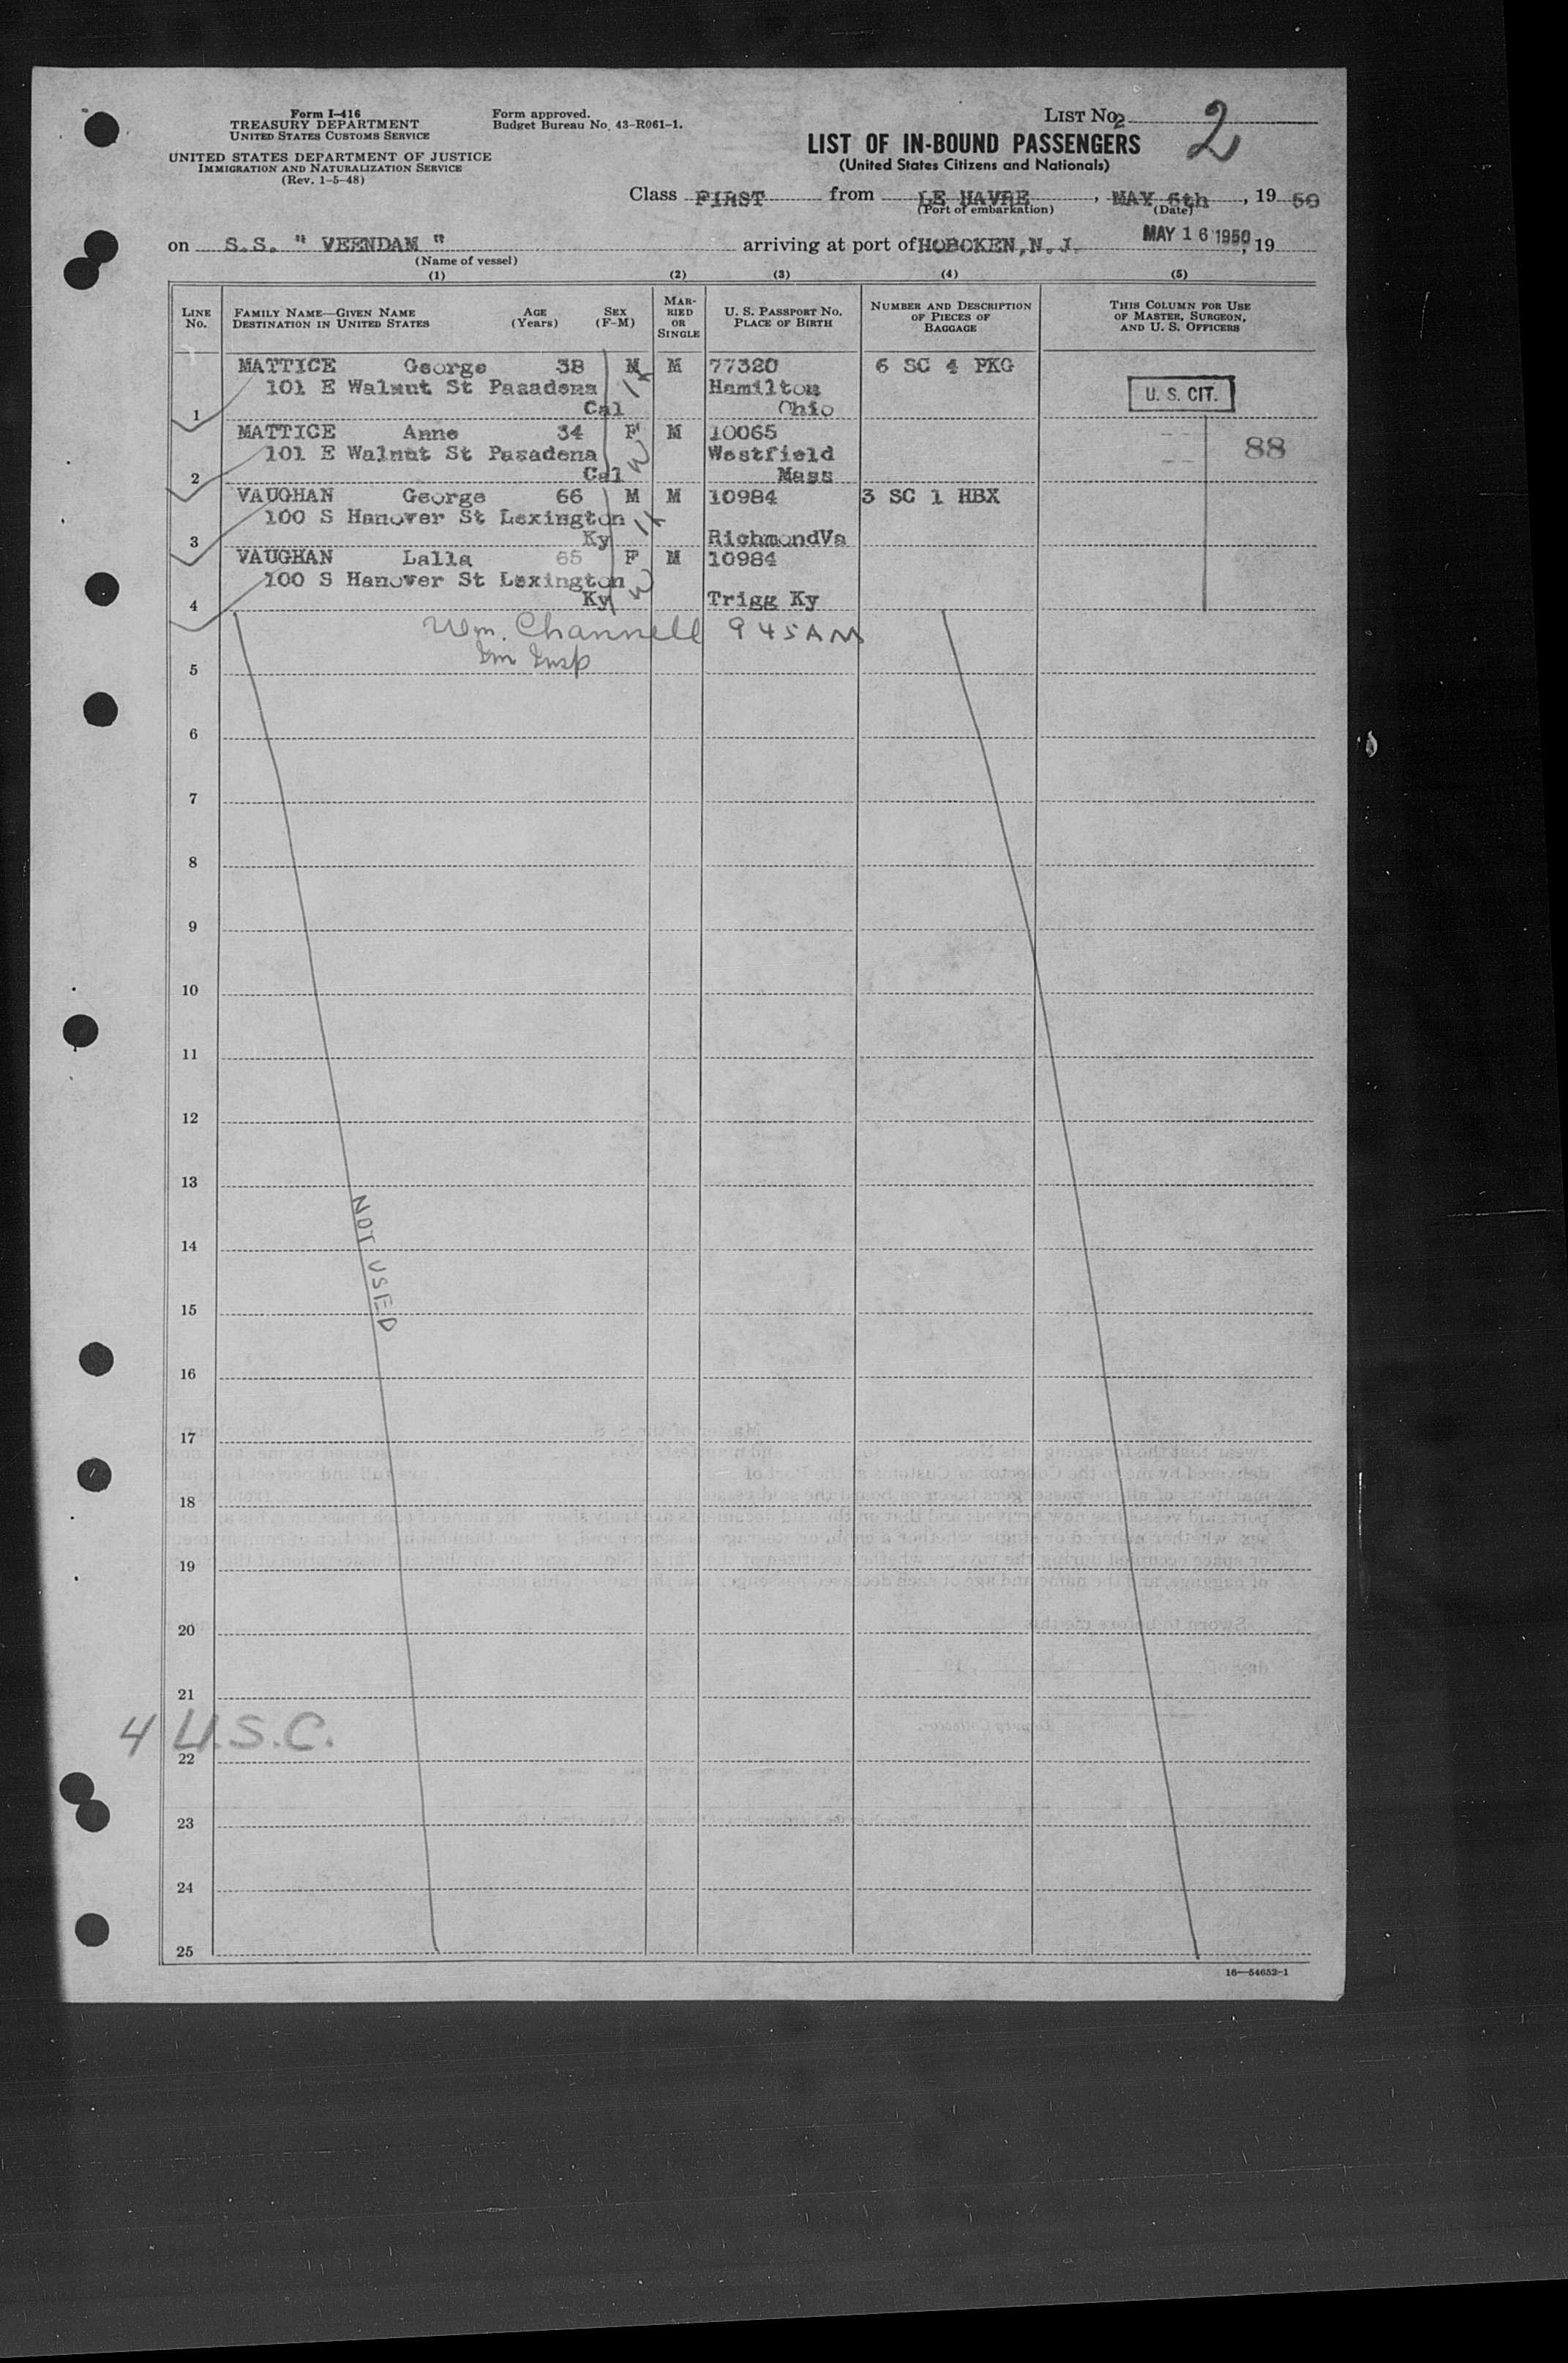 Form I-416
TREASURY DEPARTMENT
UNITED STATES CUSTOMS SERVICE
UNITED STATES DEPARTMENT OF JUSTICE
IMMIGRATION AND NATURALIZATION SERVICE
(Rev. 1-5-48)
Form approved.
Budget Bureau No. 43-R061-1.
LIST No. 2
2
LIST OF IN-BOUND PASSENGERS
(United States Citizens and Nationals)
Class FIRST from LE HAVRE, MAY 6th, 19 50
(Port of embarkation) (Date)
on S.S. " VEENDAM " arriving at port of HOBOKEN, N.J. MAY 16 1950, 19
(Name of vessel)
(1) (2) (3) (4) (5)
LINE No.
FAMILY NAME—GIVEN NAME AGE (Years) SEX (F-M)
DESTINATION IN UNITED STATES
MARRIED OR SINGLE
U. S. PASSPORT No.
PLACE OF BIRTH
NUMBER AND DESCRIPTION OF PIECES OF BAGGAGE
THIS COLUMN FOR USE OF MASTER, SURGEON, AND U. S. OFFICERS
MATTICE George 38 M M 77320 6 SC 4 PKG
101 E Walnut St Pasadena Hamilton
1 Cal Ohio
U. S. CIT.
MATTICE Anne 34 F M 10065
101 E Walnut St Pasadena Westfield
2 Cal Mass
88
VAUGHAN George 66 M M 10984 3 SC 1 HBX
100 S Hanover St Lexington
3 Ky RichmondVa
VAUGHAN Lalla 65 F M 10984
100 S Hanover St Lexington
4 Ky Trigg Ky
Wm. Channell 9 45 AM
Im Insp
5
6
7
8
9
10
11
12
13
14
15
16
17
18
19
20
21
22
23
24
25
NOT USED
4 U.S.C.
16—54652-1